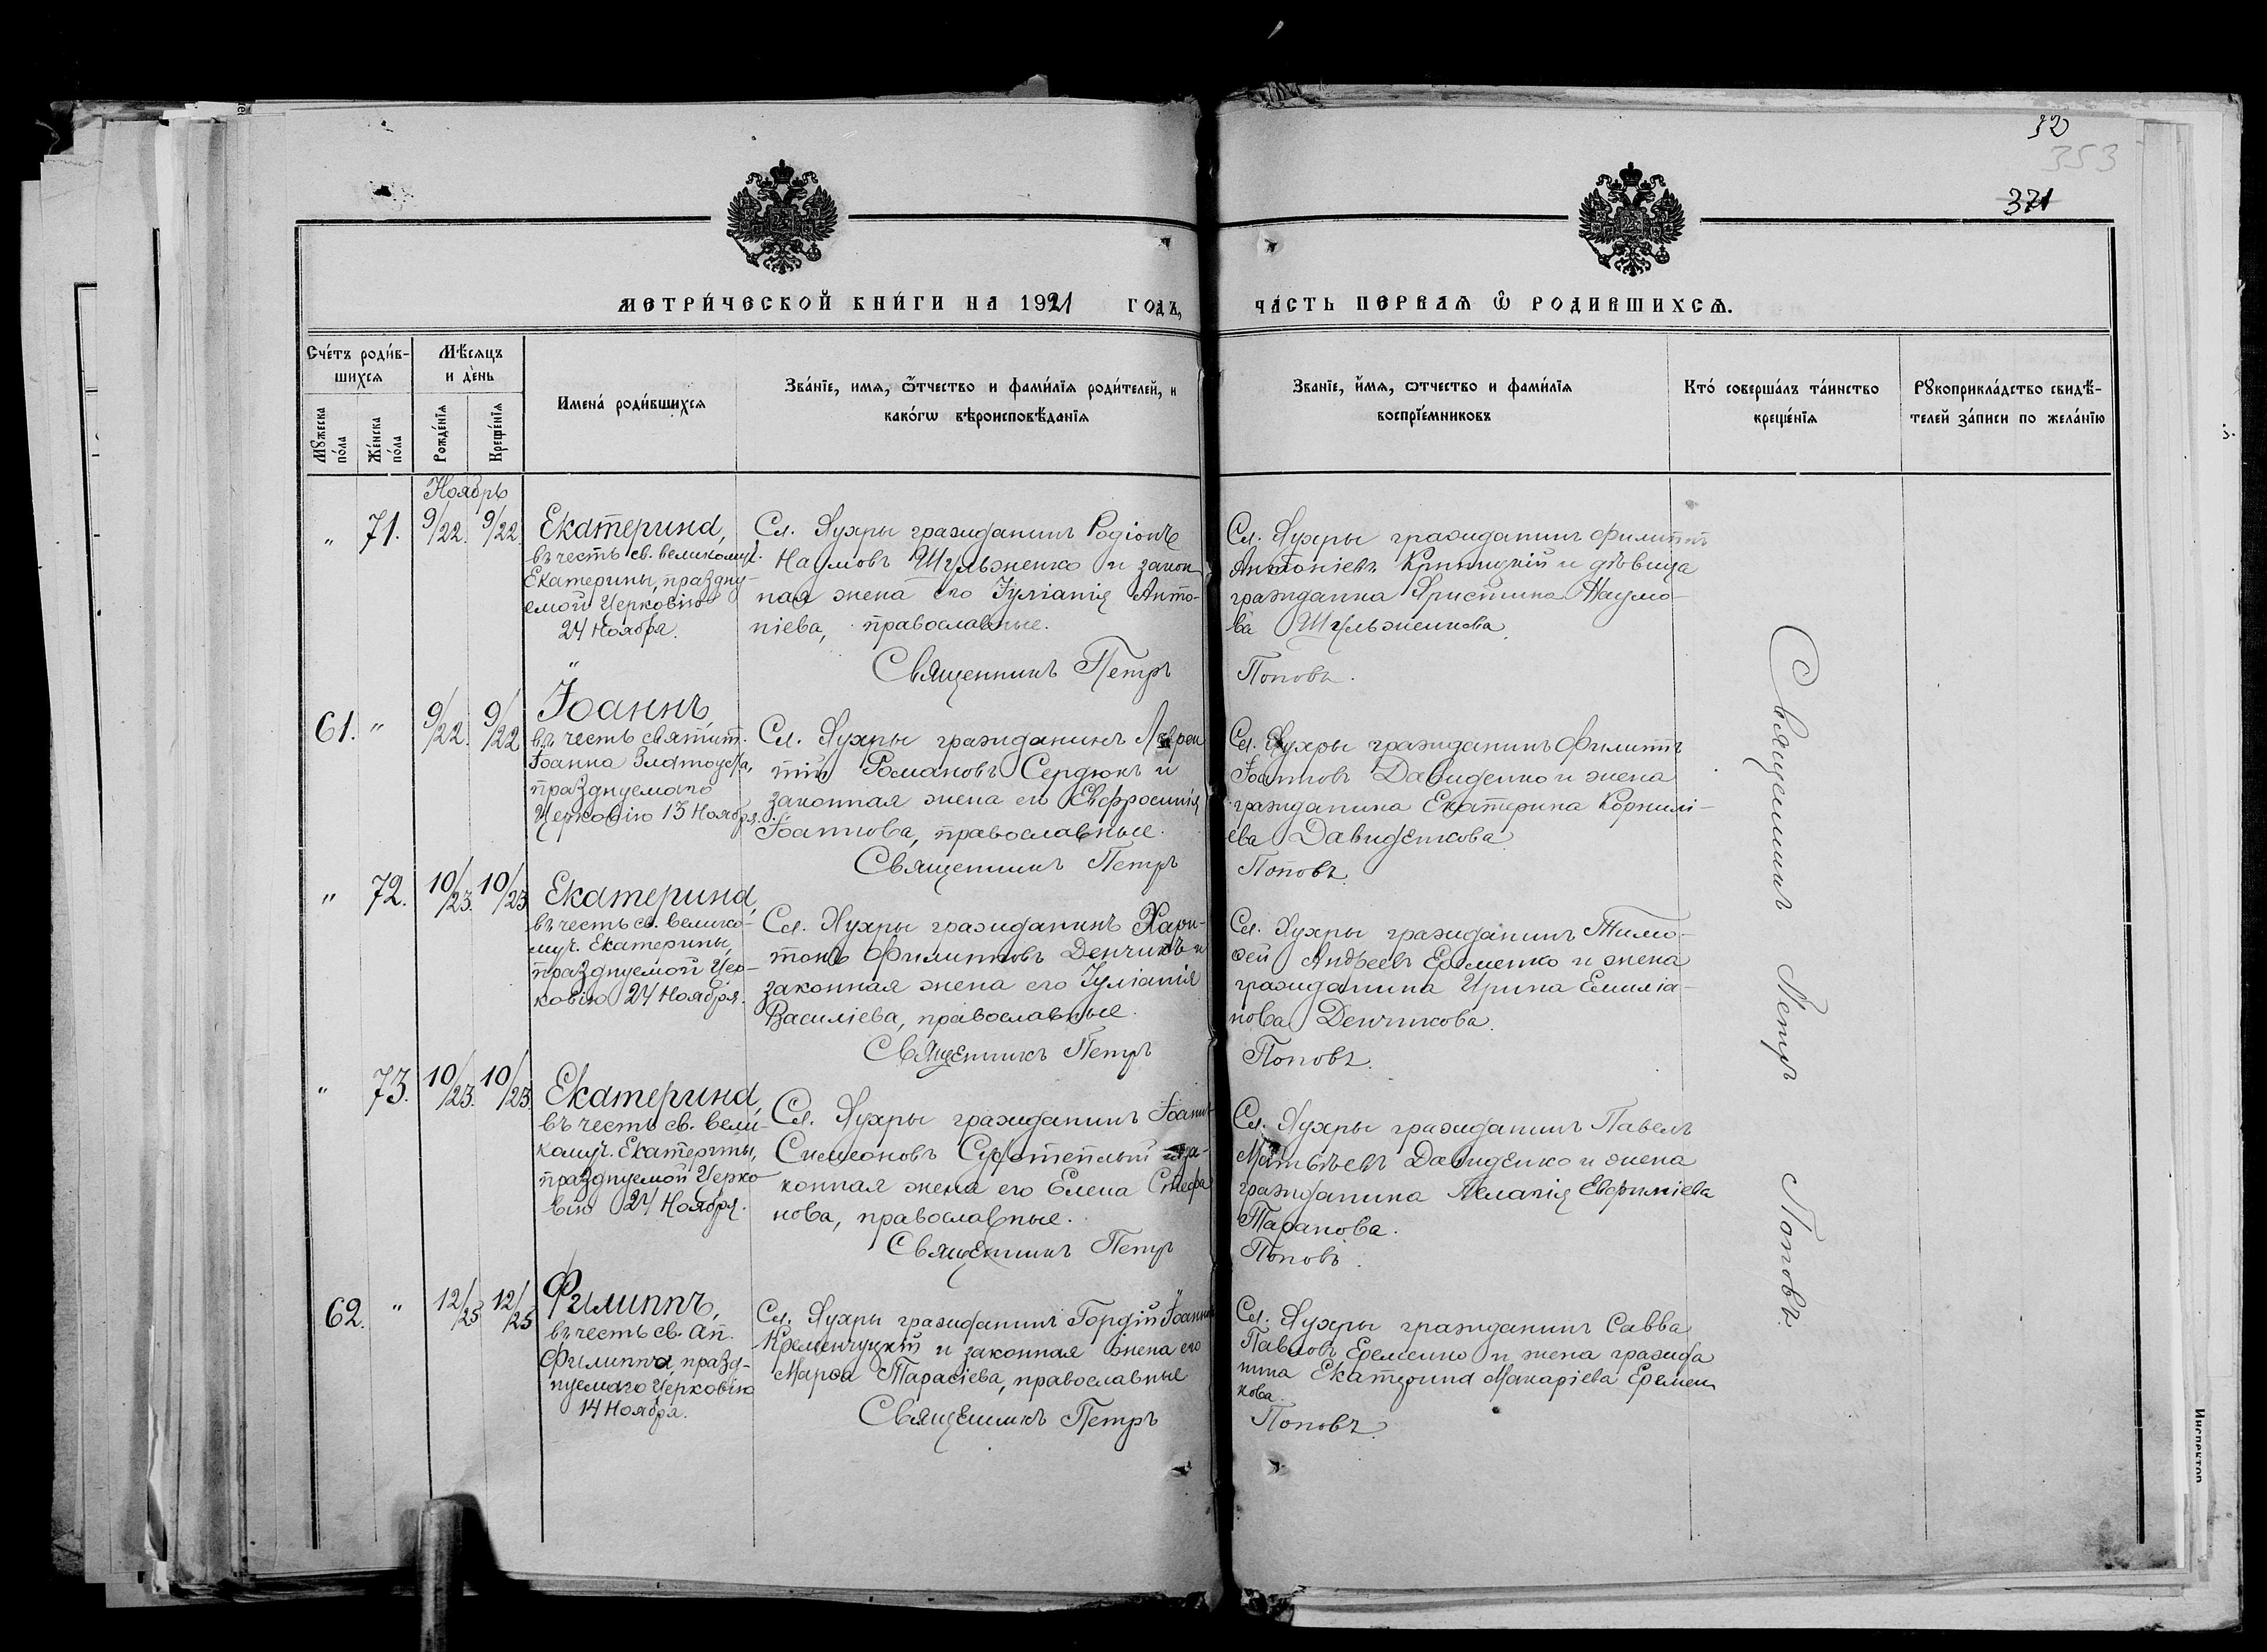 32
353
371
МЕТРИ́ЧЕСКОЙ КНИ́ГИ НА 1921 ГОДЪ, ЧА́СТЬ ПЕРВАѦ Ѿ РОДИВШИХСѦ.
Сче́тъ роди́в-
шихсѧ
Мꙋжеска по́ла
Же́нска по́ла
Мѣ́сѧцъ
и де́нь
Рожде́нїѧ
Креще́нїѧ
Имена́ роди́вшихсѧ
Зва́нїе, имѧ, ѻ҆́тчество и фами́лїѧ роди́телей, и
како́гѡ вѣроисповѣ́данїѧ
Званїе, и҆́мѧ, ѻтчество и фами́лїѧ
воспрїе́мниковъ
Кто́ соверша́лъ та́инство
креще́нїѧ
Рꙋкоприкла́дство свидѣ́-
телей за́писи по жела́нїю
Ноябрь
" 71. 9/22. 9/22
Екатерина,
въ честь св. великомуч.
Екатерины, праздну-
емой Церковію
24 Ноября.
Сл. Яухры гражданинъ Родіонъ
Наумовъ Шульженко и закон
ная жена его Іуліанія Анто-
ніева, православные.
Священникъ Петръ
Сл. Яухры гражданинъ Филиппъ
Антоніевъ Криницкій и дѣвица
гражданка Христина Наумо-
ва Шульженкова
Поповъ.
61. " 9/22. 9/22
Іоаннъ,
въ честь святит.
Іоанна Златоуста,
празднуемаго
Церковію 13 Ноября.
Сл. Яухры гражданинъ Лаврен
тій Романовъ Сердюкъ и
законная жена его Евфросинія
Іоаннова, православные.
Священникъ Петръ
Сл. Яухры гражданинъ Филиппъ
Іоанновъ Давиденко и жена
гражданина Екатерина Корнилі-
ева Давиденкова
Поповъ.
" 72. 10/23. 10/23
Екатерина,
въ честь св. велико-
муч. Екатерины,
празднуемой Цер-
ковію 24 Ноября.
Сл. Яухры гражданинъ Хари-
тонъ Филипповъ Денчикъ и
законная жена его Іуліанія
Василіева, православные.
Священникъ Петръ
Сл. Яухры гражданинъ Тимо-
ѳей Андреевъ Еременко и жена
гражданина Ирина Емиліа-
нова Денчикова.
Поповъ.
" 73. 10/23. 10/23.
Екатерина,
въ честь св. вели-
комуч. Екатерины,
празднуемой Церко-
вію 24 Ноября.
Сл. Яухры гражданинъ Іоаннъ
Симеоновъ и за-
конная жена его Елена Стефа
нова, православные.
Священникъ Петръ
Сл. Яухры гражданинъ Павелъ
Матвѣевъ Давиденко и жена
гражданина Пелагія Евфиміева
Таранова.
Поповъ.
62. " 12/25 12/25
Филиппъ,
въ честь св. Ап.
Филиппа празд-
нуемаго Церковію
14 Ноября.
Сл. Яухры гражданинъ Гордій Іоаннов
Кременчуцкій и законная жена его
Марѳа Тарасіева, православные
Священникъ Петръ
Сл. Яухры гражданинъ Савва
Павловъ Еременко и жена гражда
нина Екатерина Макаріева Еремен
кова.
Поповъ.
Священникъ Петръ Поповъ.
Инспектор